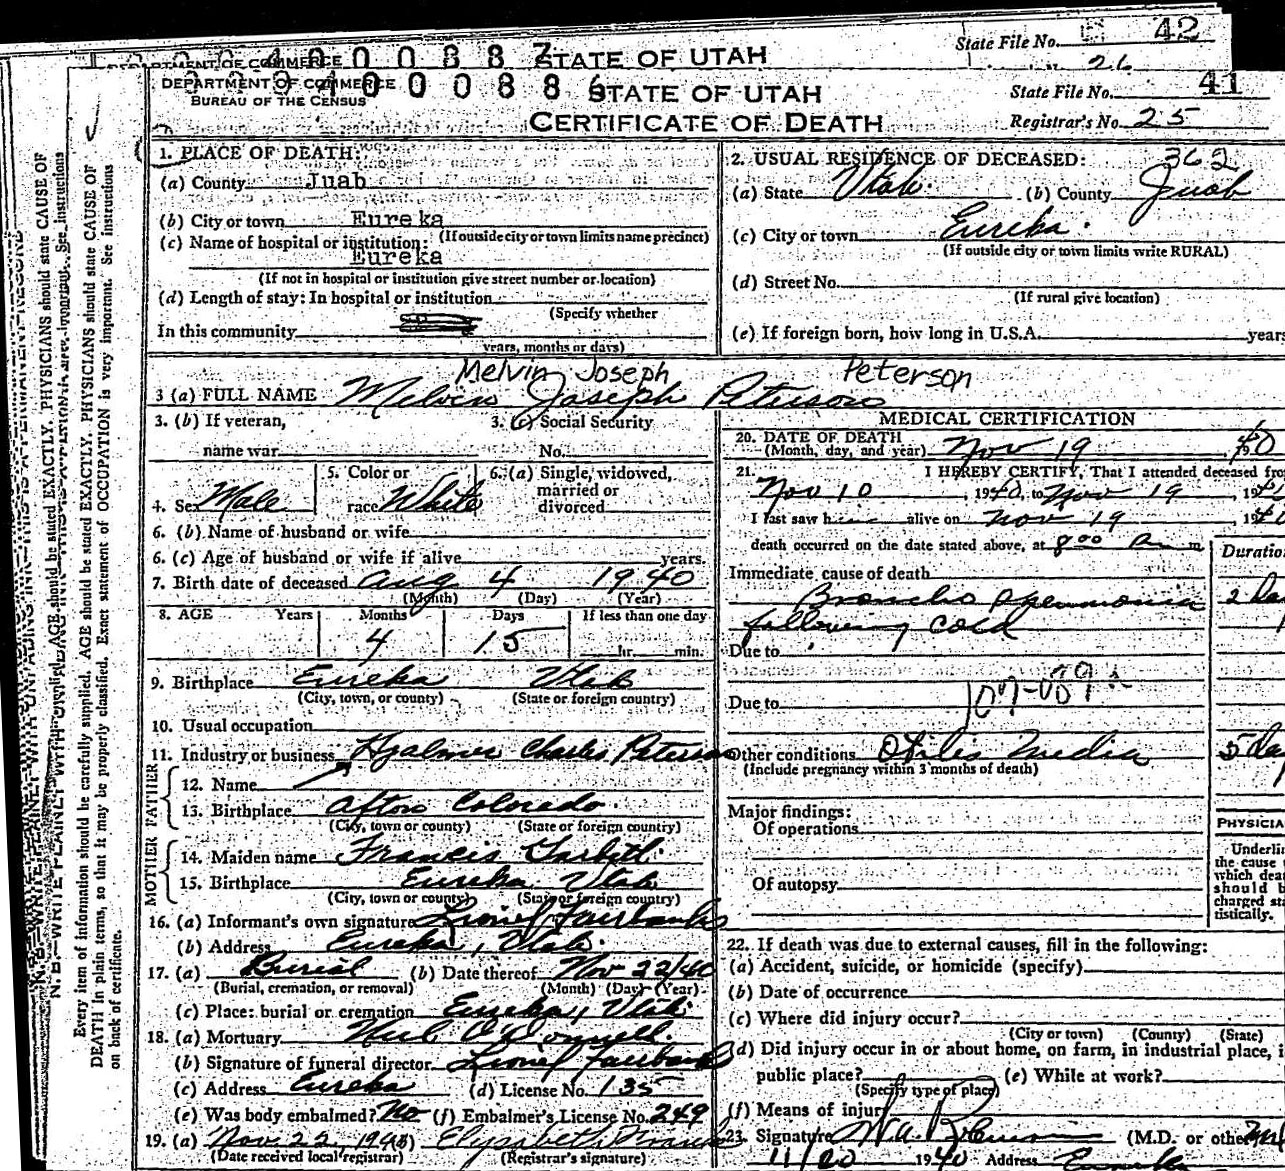 State File No. 42
DEPARTMENT OF COMMERCE STATE OF UTAH
26
DEPARTMENT OF COMMERCE
BUREAU OF THE CENSUS
STATE OF UTAH
State File No. 41
CERTIFICATE OF DEATH
Registrar's No. 25
1. PLACE OF DEATH:
(a) County Juab
(b) City or town Eureka
(If outside city or town limits name precinct)
(c) Name of hospital or institution:
Eureka
(If not in hospital or institution give street number or location)
(d) Length of stay: In hospital or institution
(Specify whether
In this community
years, months or days)
2. USUAL RESIDENCE OF DECEASED: 362
(a) State Utah (b) County Juab
(c) City or town Eureka
(If outside city or town limits write RURAL)
(d) Street No.
(If rural give location)
(e) If foreign born, how long in U.S.A. years
Melvin Joseph Peterson
3 (a) FULL NAME Melvin Joseph Peterson
3. (b) If veteran, 3. (c) Social Security
name war No.
4. Sex Male
5. Color or
race White
6. (a) Single, widowed,
married or
divorced
6. (b) Name of husband or wife
6. (c) Age of husband or wife if alive years.
7. Birth date of deceased Aug 4 1940
(Month) (Day) (Year)
8. AGE Years Months Days If less than one day
4 15 hr. min.
9. Birthplace Eureka Utah
(City, town, or county) (State or foreign country)
10. Usual occupation
11. Industry or business Hjalmer Charles Peterson
FATHER
12. Name
13. Birthplace Afton Colorado
(City, town or county) (State or foreign country)
MOTHER
14. Maiden name Francis
15. Birthplace Eureka Utah
(City, town or county) (State or foreign country)
16. (a) Informant's own signature Lionel Fairbanks
(b) Address Eureka, Utah.
17. (a) Burial (b) Date thereof Nov 22/40
(Burial, cremation, or removal) (Month) (Day) (Year)
(c) Place: burial or cremation Eureka, Utah
18. (a) Mortuary O'Donnell
(b) Signature of funeral director Lionel Fairbanks
(c) Address Eureka (d) License No. 135
(e) Was body embalmed? No (f) Embalmer's License No. 249
19. (a) Nov. 22, 19 Elizabeth
(Date received local registrar) (Registrar's signature)
MEDICAL CERTIFICATION
20. DATE OF DEATH
(Month, day, and year) Nov 19 40
21. I HEREBY CERTIFY, That I attended deceased from
Nov 10, 1940, to Nov 19, 19
I last saw h alive on Nov 19, 19
death occurred on the date stated above, at 8:00 a m
Duration
Immediate cause of death
Broncho pneumonia 2
following cold
Due to
Due to
107
Other conditions Otitis Media 5
(Include pregnancy within 3 months of death)
Major findings:
Of operations
Of autopsy
PHYSICIA
Underli
the cause
which dea
should b
charged sta
tistically.
22. If death was due to external causes, fill in the following:
(a) Accident, suicide, or homicide (specify)
(b) Date of occurrence
(c) Where did injury occur?
(City or town) (County) (State)
(d) Did injury occur in or about home, on farm, in industrial place, i
public place? (e) While at work?
(Specify type of place)
(f) Means of injury
23. Signature (M.D. or other)
11/20 1940 Address Eureka
Every item of information should be carefully supplied. AGE should be stated EXACTLY. PHYSICIANS should state CAUSE OF
DEATH in plain terms, so that it may be properly classified. Exact statement of OCCUPATION is very important. See instructions
on back of certificate.